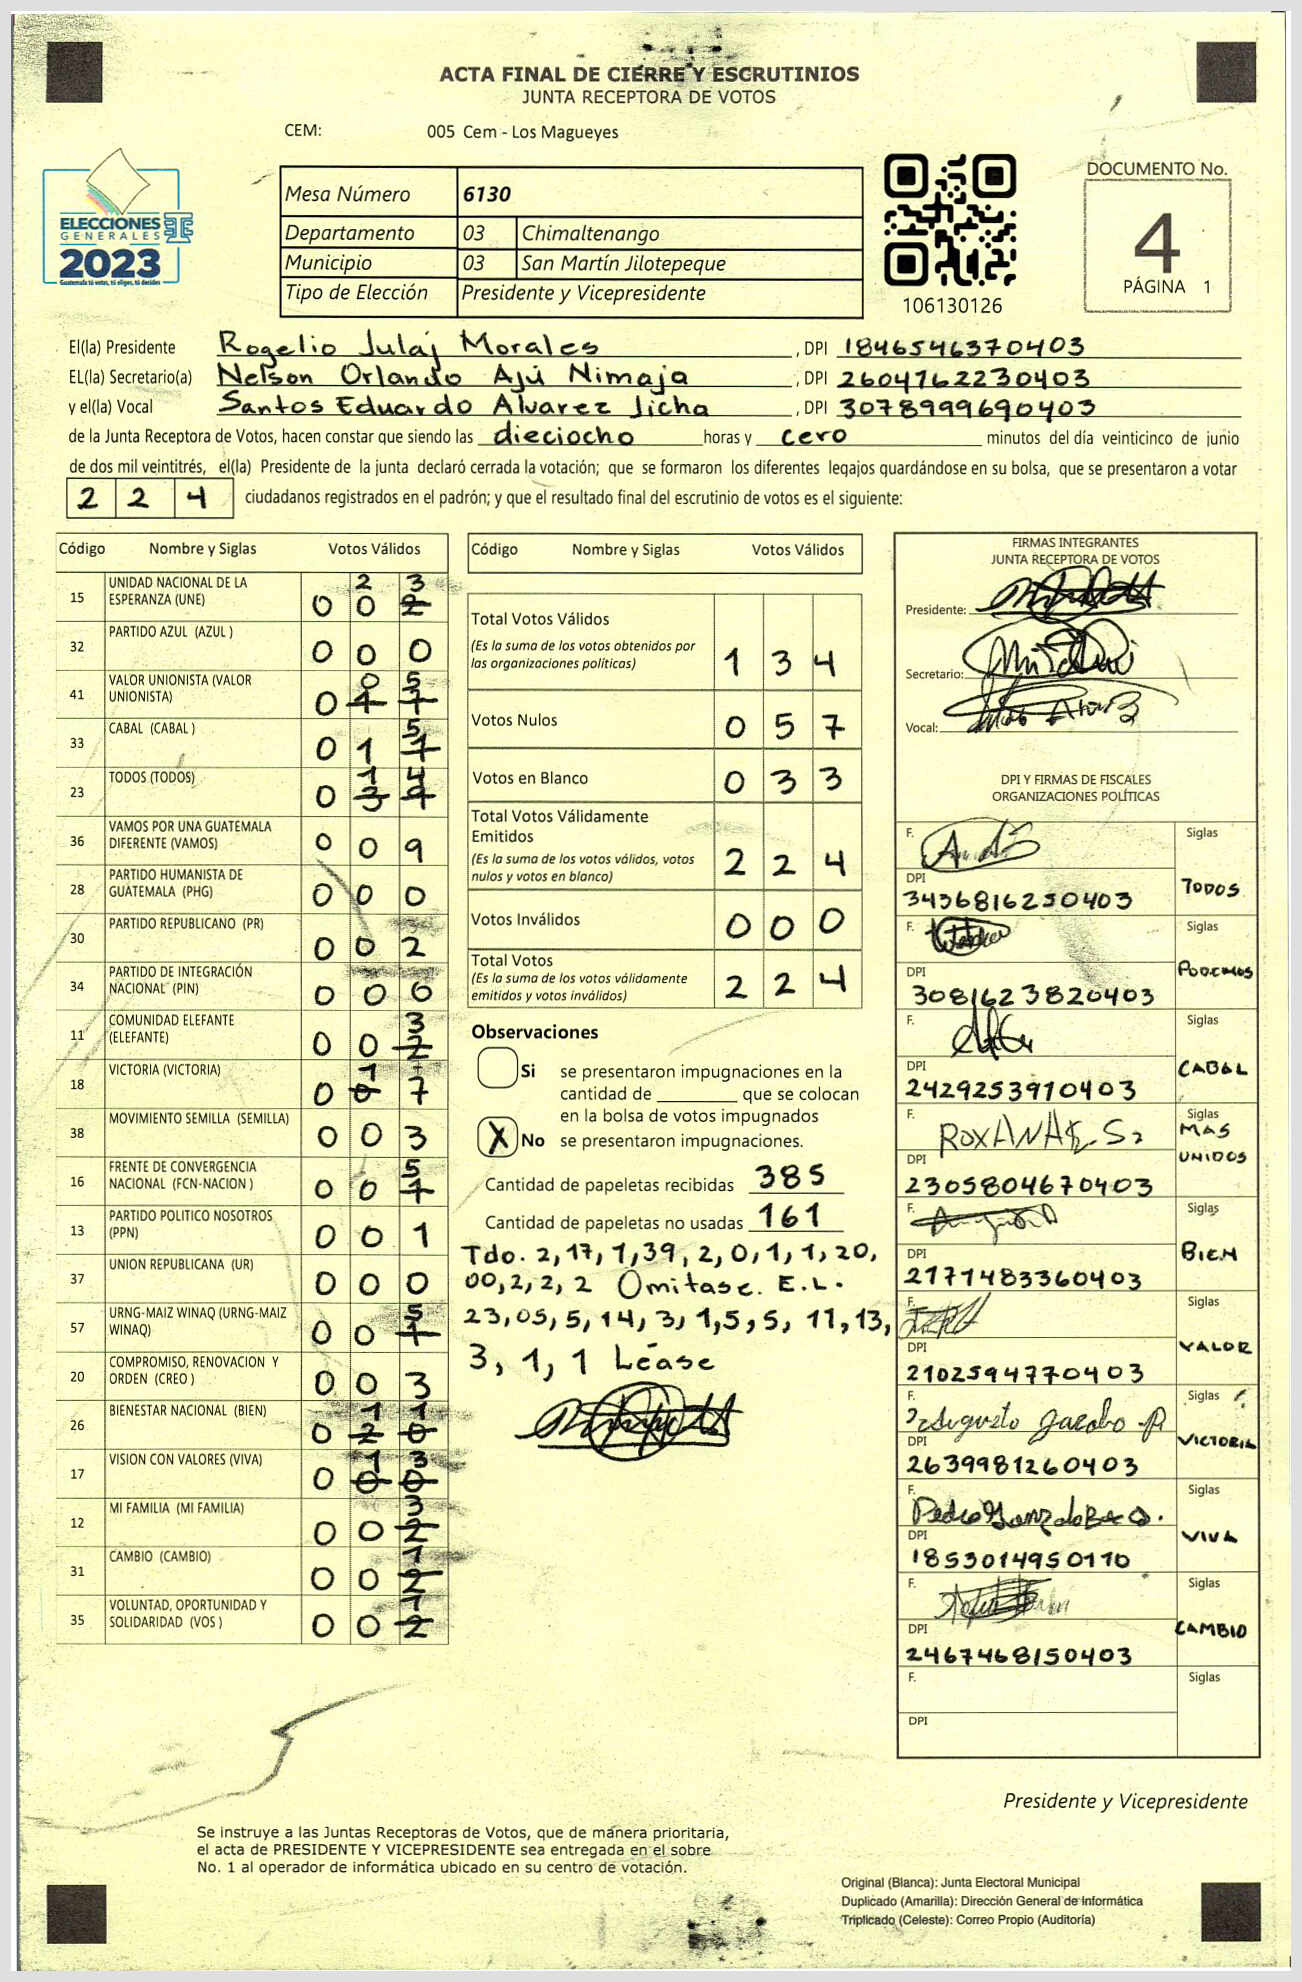 ACTA FINAL DE CIERRE Y ESCRUTINIOS
JUNTA RECEPTORA DE VOTOS
CEM: 005 Cem - Los Magueyes
ELECCIONES
GENERALES
2023
Guatemala tú votas, tú eliges, tú decides
Mesa Número 6130
Departamento 03 Chimaltenango
Municipio 03 San Martín Jilotepeque
Tipo de Elección Presidente y Vicepresidente
106130126
DOCUMENTO No.
4
PÁGINA 1
El(la) Presidente Rogelio Julaj Morales, DPI 1846546370403
EL(la) Secretario(a) Nelson Orlando Ajú Nimaja, DPI 2604762230403
y el(la) Vocal Santos Eduardo Alvarez Jicha, DPI 3078999690403
de la Junta Receptora de Votos, hacen constar que siendo las dieciocho horas y cero minutos del día veinticinco de junio
de dos mil veintitrés, el(la) Presidente de la junta declaró cerrada la votación; que se formaron los diferentes legajos guardándose en su bolsa, que se presentaron a votar
2 2 4 ciudadanos registrados en el padrón; y que el resultado final del escrutinio de votos es el siguiente:
Código Nombre y Siglas Votos Válidos
15 UNIDAD NACIONAL DE LA ESPERANZA (UNE) 2 3
0 0 2
32 PARTIDO AZUL (AZUL ) 0 0 0
41 VALOR UNIONISTA (VALOR UNIONISTA) 0 5
0 1 7
33 CABAL (CABAL ) 5
0 1 1
23 TODOS (TODOS) 1 4
0 3 9
36 VAMOS POR UNA GUATEMALA DIFERENTE (VAMOS) 0 0 9
28 PARTIDO HUMANISTA DE GUATEMALA (PHG) 0 0 0
30 PARTIDO REPUBLICANO (PR) 0 0 2
34 PARTIDO DE INTEGRACIÓN NACIONAL (PIN) 0 0 0
11 COMUNIDAD ELEFANTE (ELEFANTE) 3
0 0 2
18 VICTORIA (VICTORIA) 1
0 0 7
38 MOVIMIENTO SEMILLA (SEMILLA) 0 0 3
16 FRENTE DE CONVERGENCIA NACIONAL (FCN-NACION ) 5
0 0 1
13 PARTIDO POLITICO NOSOTROS (PPN) 0 0 1
37 UNION REPUBLICANA (UR) 0 0 0
57 URNG-MAIZ WINAQ (URNG-MAIZ WINAQ) 5
0 0 1
20 COMPROMISO, RENOVACION Y ORDEN (CREO ) 0 0 3
26 BIENESTAR NACIONAL (BIEN) 1 1
0 2 0
17 VISION CON VALORES (VIVA) 1 3
0 0 0
12 MI FAMILIA (MI FAMILIA) 3
0 0 2
31 CAMBIO (CAMBIO) 1
0 0 2
35 VOLUNTAD, OPORTUNIDAD Y SOLIDARIDAD (VOS ) 1
0 0 2
Código Nombre y Siglas Votos Válidos
Total Votos Válidos
(Es la suma de los votos obtenidos por
las organizaciones políticas) 1 3 4
Votos Nulos 0 5 7
Votos en Blanco 0 3 3
Total Votos Válidamente
Emitidos
(Es la suma de los votos válidos, votos
nulos y votos en blanco) 2 2 4
Votos Inválidos 0 0 0
Total Votos
(Es la suma de los votos válidamente
emitidos y votos inválidos) 2 2 4
Observaciones
Si se presentaron impugnaciones en la
cantidad de ________ que se colocan
en la bolsa de votos impugnados
X No se presentaron impugnaciones.
Cantidad de papeletas recibidas 385
Cantidad de papeletas no usadas 161
Tdo. 2, 17, 1, 39, 2, 0, 1, 1, 20,
00, 2, 2, 2 Omitase. E.L.
23, 05, 5, 14, 3, 1, 5, 5, 11, 13,
3, 1, 1 Léase
FIRMAS INTEGRANTES
JUNTA RECEPTORA DE VOTOS
Presidente:
Secretario:
Vocal:
DPI Y FIRMAS DE FISCALES
ORGANIZACIONES POLÍTICAS
F. Siglas
DPI TODOS
3436816250403
F. Siglas
DPI PODEMOS
3081623820403
F. Siglas
DPI CABAL
2429253910403
F. ROXANA Siglas
DPI MAS UNIDOS
2305804670403
F. Siglas
DPI BIEN
2171483360403
F. Siglas
DPI VALOR
2102594770403
F. Augusto Jacobo Siglas
DPI VICTORIA
2639981260403
F. Pedro Siglas
DPI VIVA
1853014950110
F. Siglas
DPI CAMBIO
2467468150403
F. Siglas
DPI
Presidente y Vicepresidente
Se instruye a las Juntas Receptoras de Votos, que de manera prioritaria,
el acta de PRESIDENTE Y VICEPRESIDENTE sea entregada en el sobre
No. 1 al operador de informática ubicado en su centro de votación.
Original (Blanca): Junta Electoral Municipal
Duplicado (Amarilla): Dirección General de Informática
Triplicado (Celeste): Correo Propio (Auditoría)